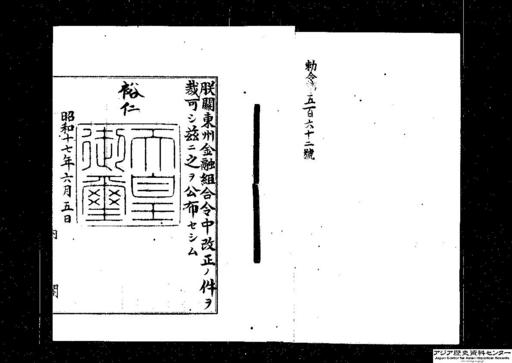 勅令第五百六十二號
朕關東州金融組合令中改正ノ件ヲ
裁可シ茲ニ之ヲ公布セシム
裕仁
天皇
御璽
昭和十七年六月五日
内
閣
アジア歴史資料センター
Japan Center for Asian Historical Records